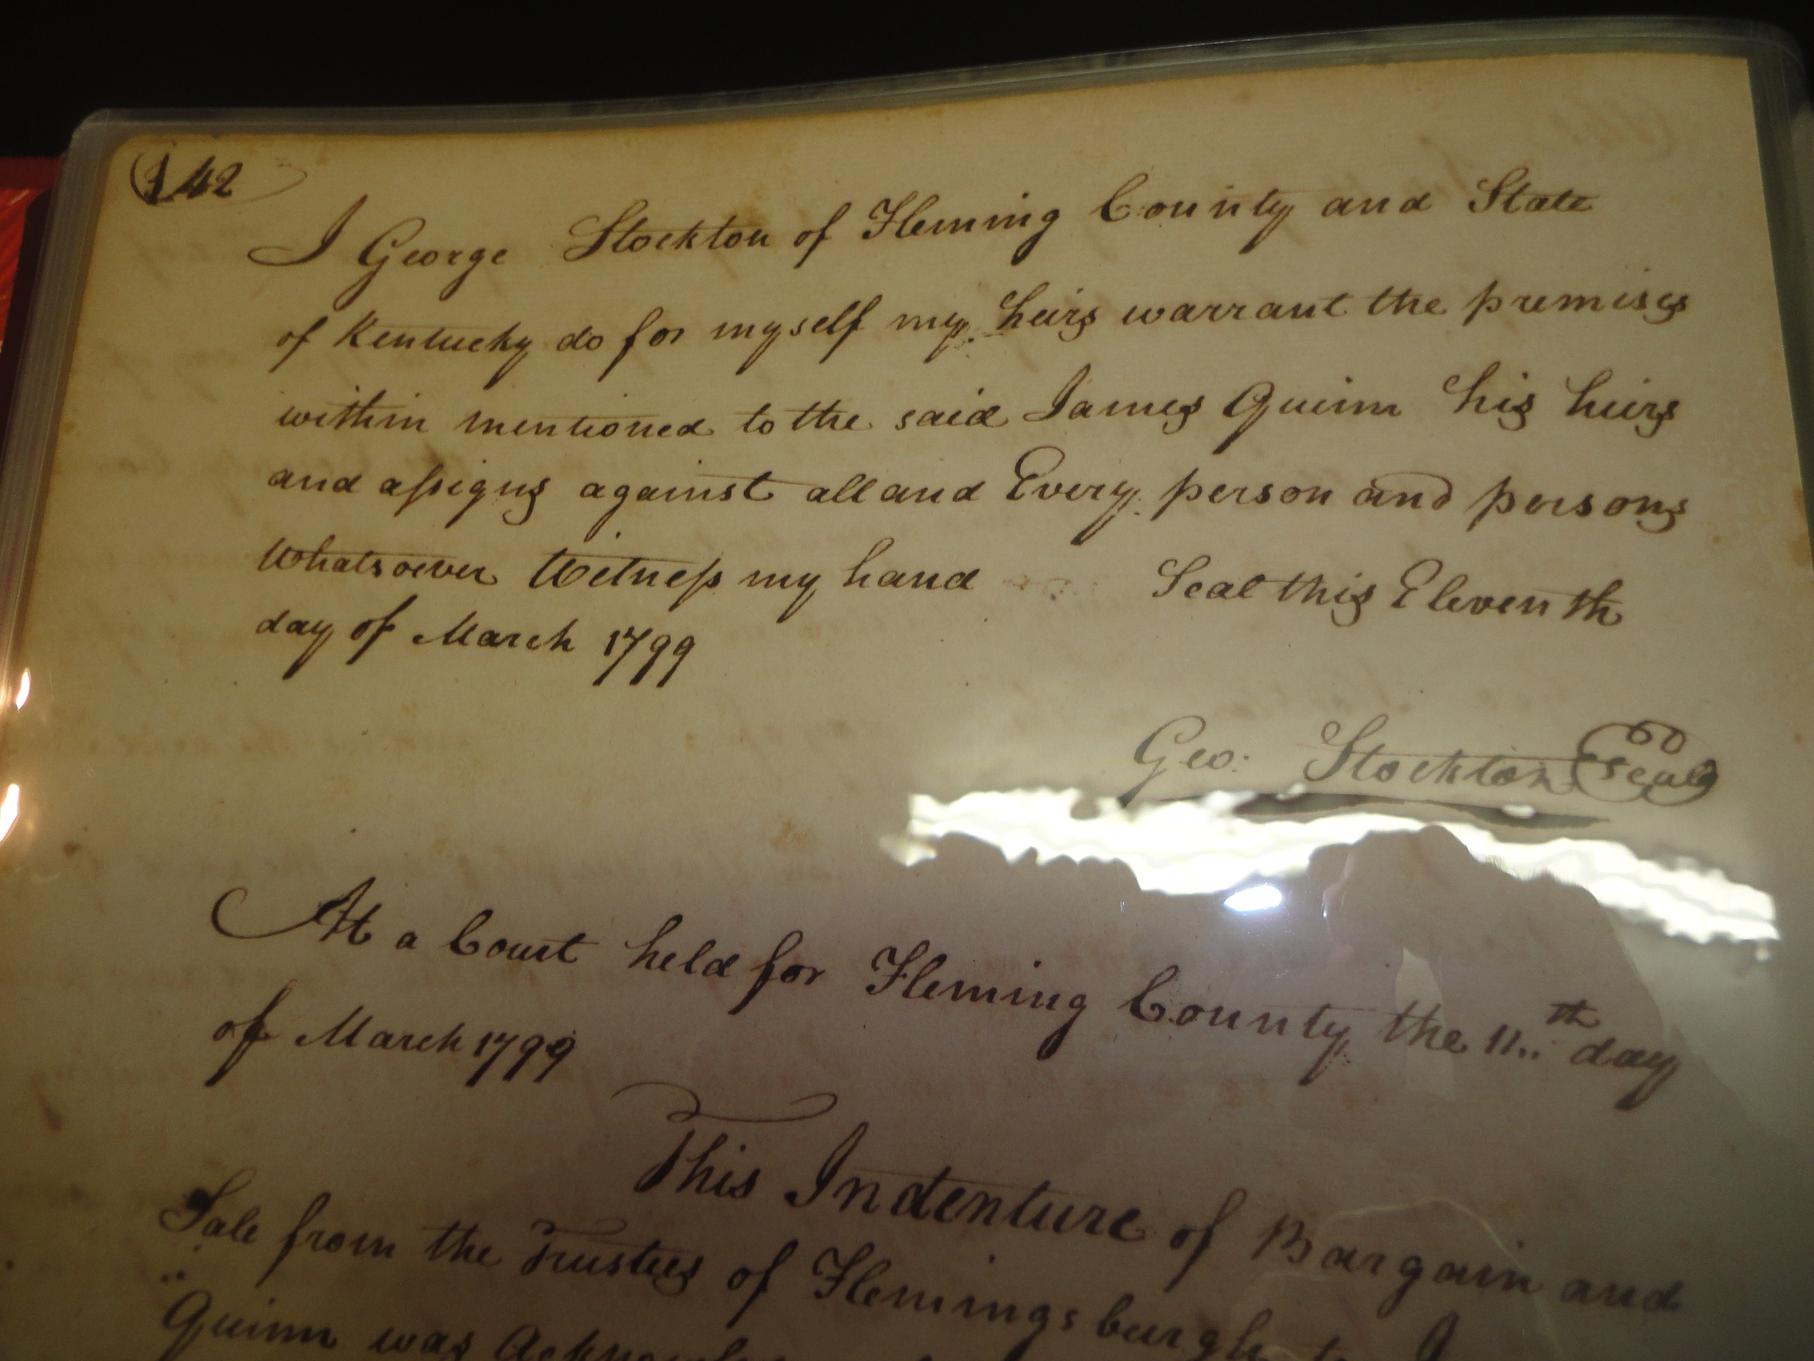 142
I George Stockton of Fleming County and State
of Kentucky do for myself my heirs warrant the premises
within mentioned to the said James Quinn his heirs
and assigns against all and Every person and persons
Whatsoever Witness my hand Seal this Eleventh
day of March 1799
Geo: Stockton Seal
At a Court held for Fleming County the 11th day
of March 1799
This Indenture of Bargain and
Sale from the Trustees of Flemingsburgh to J
Quinn was